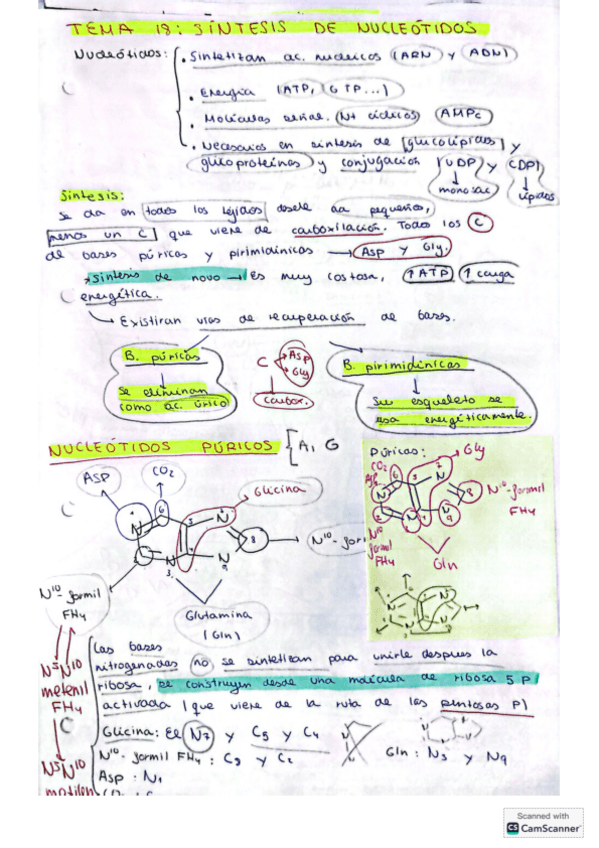 TEMA 18: SÍNTESIS DE NUCLEÓTIDOS
Nucleótidos:
• Sintetizan ac. nucleicos (ARN) y (ADN)
• Energía (ATP, GTP...)
• Moléculas señal. (Nt cíclicos) (AMPc)
• Necesarios en síntesis de glucolípidos y
glucoproteínas y conjugación (UDP) y (CDP)
monosac
lípidos
Síntesis:
Se da en todos los tejidos desde aa pequeños,
menos un C que viene de carboxilación. Todos los C
de bases púricas y pirimidínicas → Asp y Gly.
Síntesis de novo → es muy costosa, ↑ATP ↑carga
energética.
↳ Existiran vías de recuperación de bases.
B. púricas
Se eliminan
como ac. úrico
C
Asp
Gly
carbox.
B. pirimidínicas
Su esqueleto se
usa energéticamente.
NUCLEÓTIDOS PÚRICOS [A, G
ASP
CO2
Glicina
N
6
5
N
8
N
9
N
3
N10-formil
FH4
Glutamina
(Gln)
Púricas:
Gly
CO2
N10-formil
FH4
N10
formil
FH4
Gln
N5N10
metenil
FH4
N5N10
Las bases
nitrogenadas no se sintetizan para unirle despues la
ribosa, se construyen desde una molécula de ribosa 5 P
activada (que viene de la ruta de las pentosas P)
Glicina: El N7 y C5 y C4
N10-formil FH4: C8 y C2
Gln: N3 y N9
Asp: N1
Scanned with
CS CamScanner